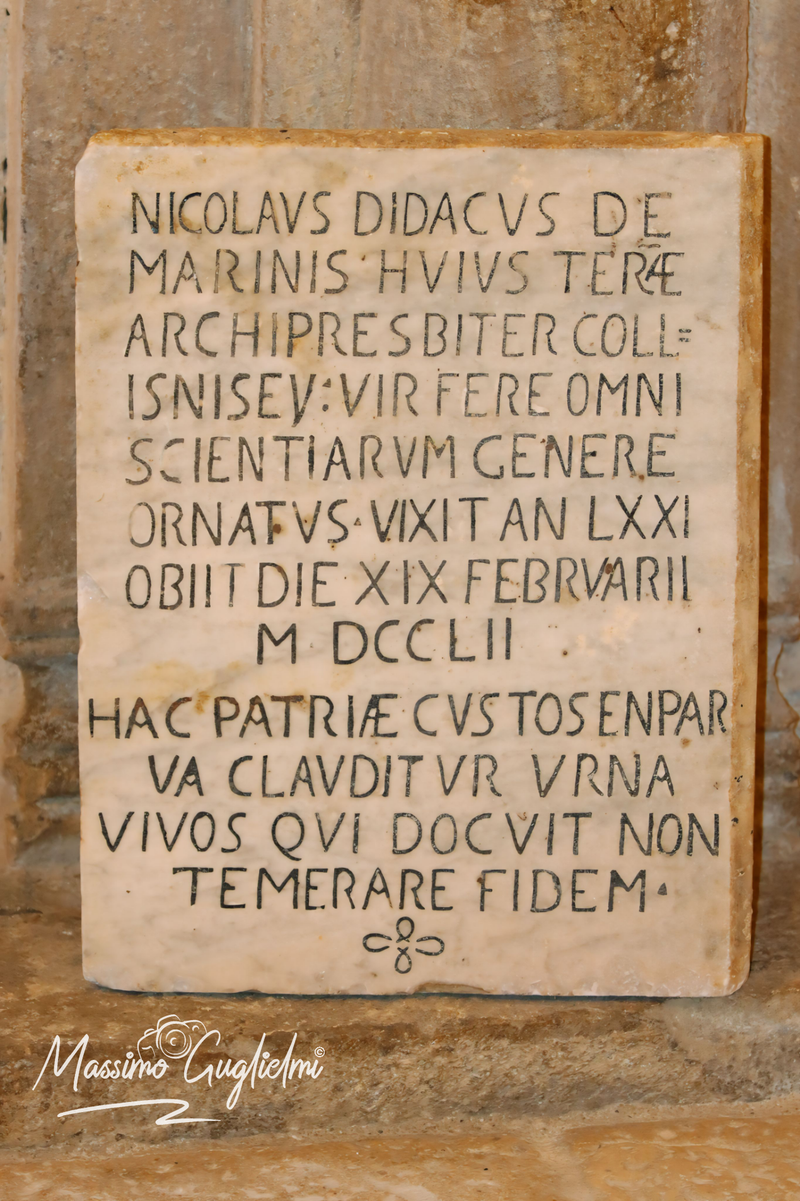 NICOLAVS DIDACVS DE
MARINIS·HVIVS TERÆ
ARCHIPRESBITER COLL=
ISNISEV:VIR FERE OMNI
SCIENTIARVM GENERE
ORNATVS·VIXIT AN LXXI
OBIIT DIE XIX FEBRVARII
M DCCLII
HAC PATRIÆ CVSTOS EN PAR
VA CLAVDITVR VRNA
VIVOS QVI DOCVIT NON
TEMERARE FIDEM·
Massimo Guglielmi©